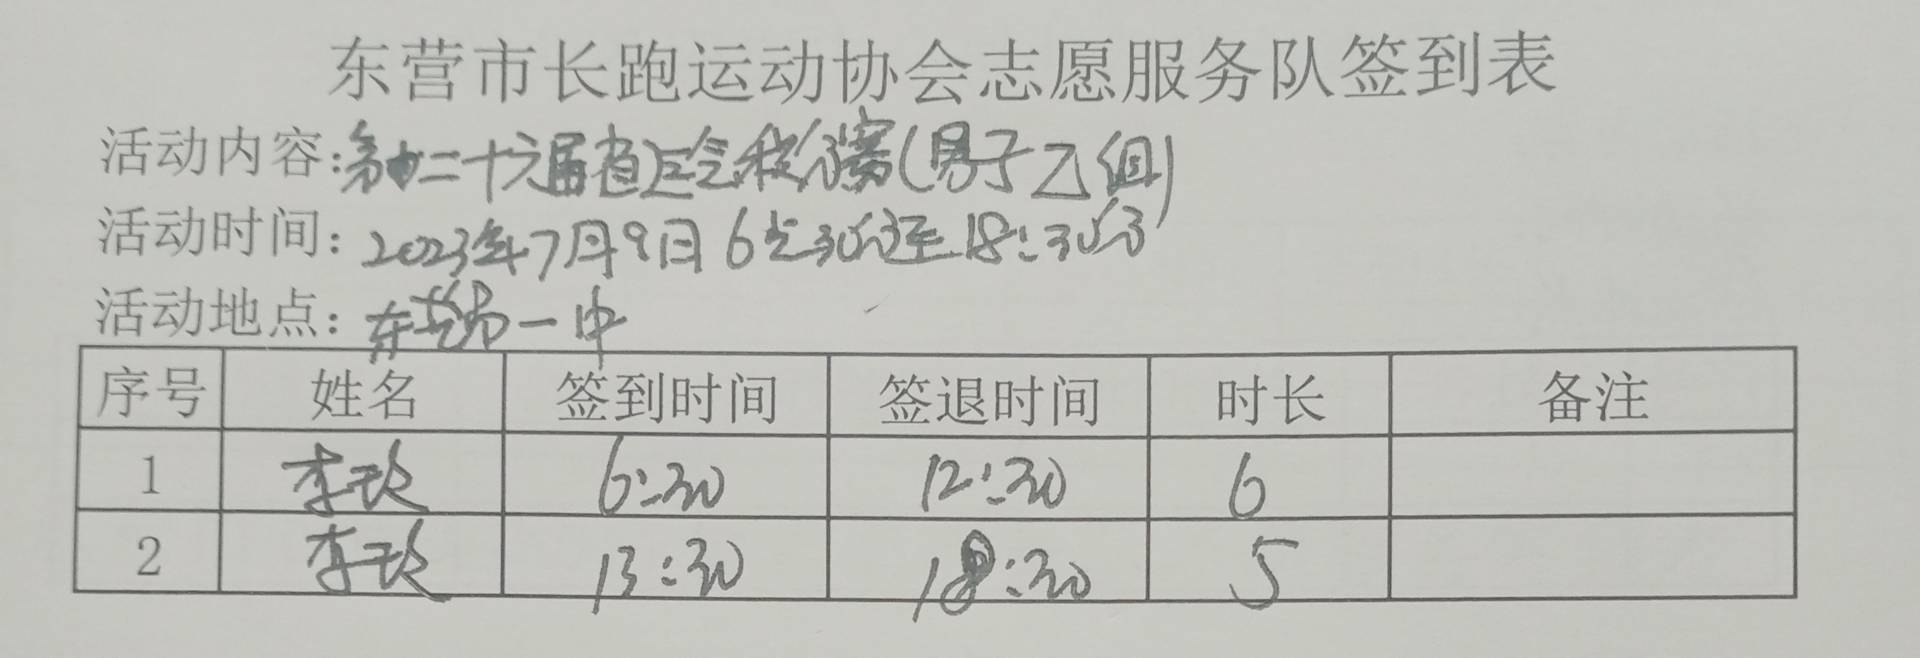 东营市长跑运动协会志愿服务队签到表
活动内容：第二十六届省运会校份赛(男子乙组)
活动时间：2023年7月9日6点30分至18:30分
活动地点：东营市一中
序号 姓名 签到时间 签退时间 时长 备注
1 李玫 6:30 12:30 6
2 李玫 13:30 18:30 5